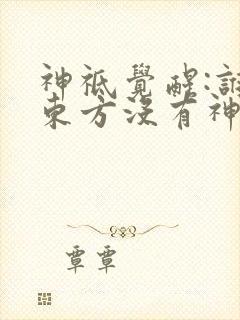 神祇覺醒:誰
東方沒有神
覃覃